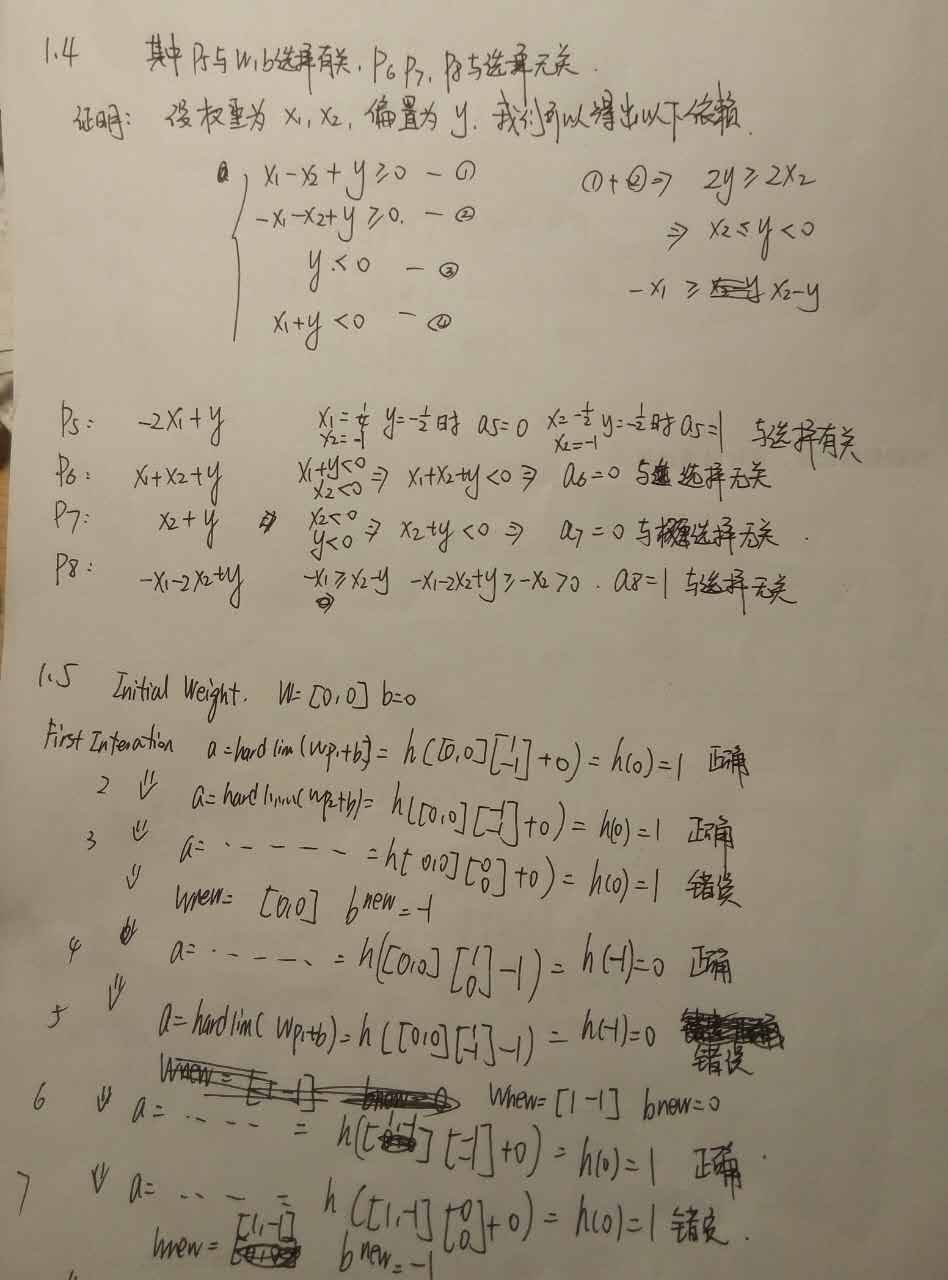 1.4 其中P5与W,b选择有关, P6 P7, P8与选择无关.
证明: 设权重为 x1, x2, 偏置为 y. 我们可以得出以下依赖.
x1-x2+y≥0 - ① ①+②⇒ 2y≥2x2
-x1-x2+y≥0. - ② ⇒ x2≤y<0
y<0 - ③ -x1≥ x2-y
x1+y<0 - ④
P5: -2x1+y x1= y=-1/2时 a5=0 x=-1/2 y=-1/2时 a5=1 与选择有关
x2=-1 x2=-1
P6: x1+x2+y x1+y<0 x2<0 ⇒ x1+x2+y<0 ⇒ a6=0 与选择无关
P7: x2+y ⇒ x2<0 y<0 ⇒ x2+y<0 ⇒ a7=0 与选择无关.
P8: -x1-2x2+y -x1≥x2-y -x1-2x2+y≥-x2>0. a8=1 与选择无关
1.5 Initial Weight. W=[0,0] b=0
First Interation a=hardlim(wp1+b)= h([0,0][1 -1]+0)=h(0)=1 正确
2 ⇓ a=hardlim(wp2+b)= h([0,0][-1 -1]+0)=h(0)=1 正确
3 ⇓ a= ------ =h([0,0][0 0]+0)=h(0)=1 错误
⇓ Wnew= [0,0] b new=-1
4 a= ------ = h([0,0][1 0]-1)= h(-1)=0 正确
5 ⇓ a=hardlim(wp1+b)=h([0,0][1 -1]-1)=h(-1)=0
错误
Wnew=[1 -1] bnew=0
6 ⇓ a= ---- = h([1,-1][-1 -1]+0)=h(0)=1 正确.
7 ⇓ a= ---- = h([1,-1][0 0]+0)=h(0)=1 错误.
Wnew= [1,-1] b new=-1